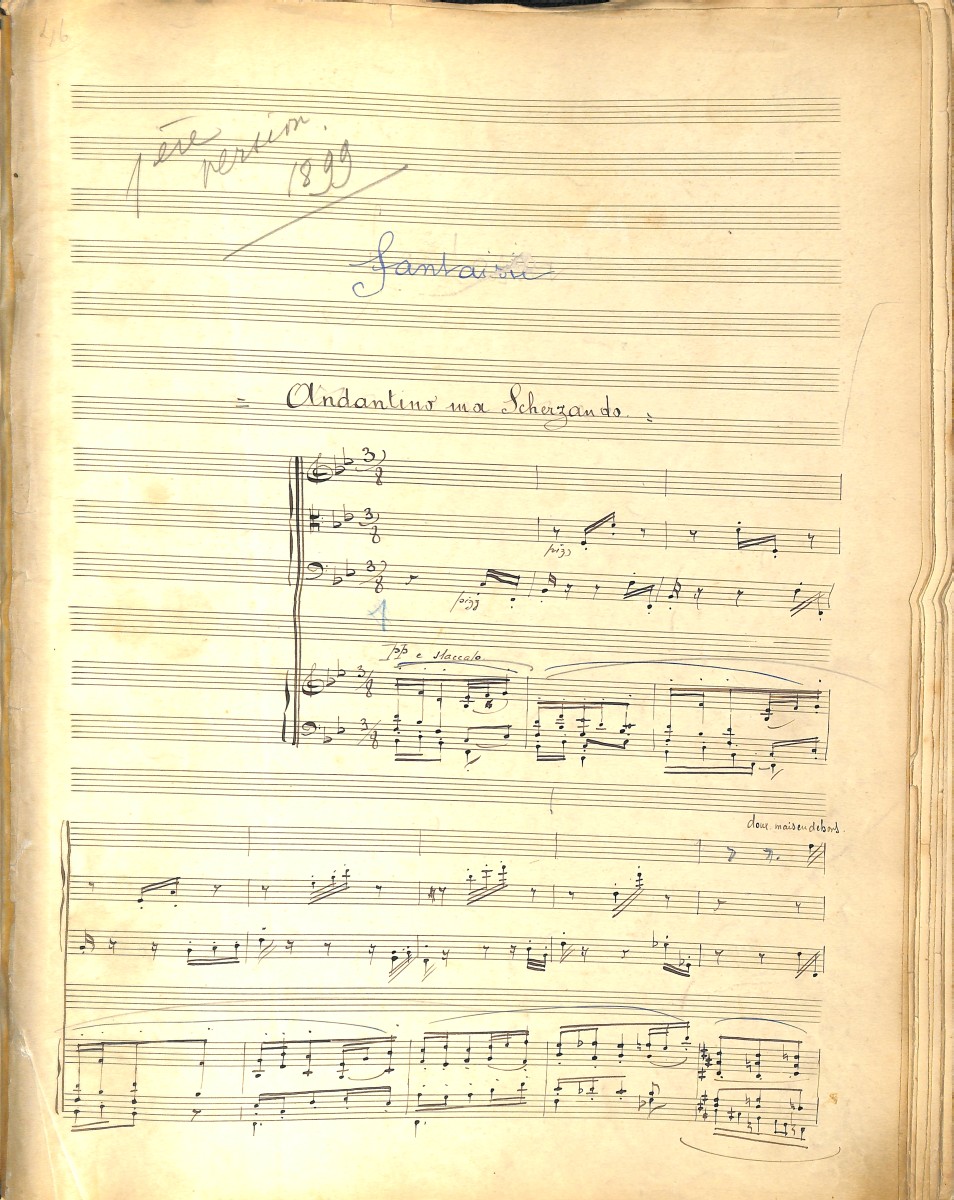 46
1ère
version.
1899
fantaisie
= Andantino ma Scherzando. =
3/8
3/8
pizz
3/8
pizz
1
pp e staccato
3/8
3/8
doux mais en dehors.